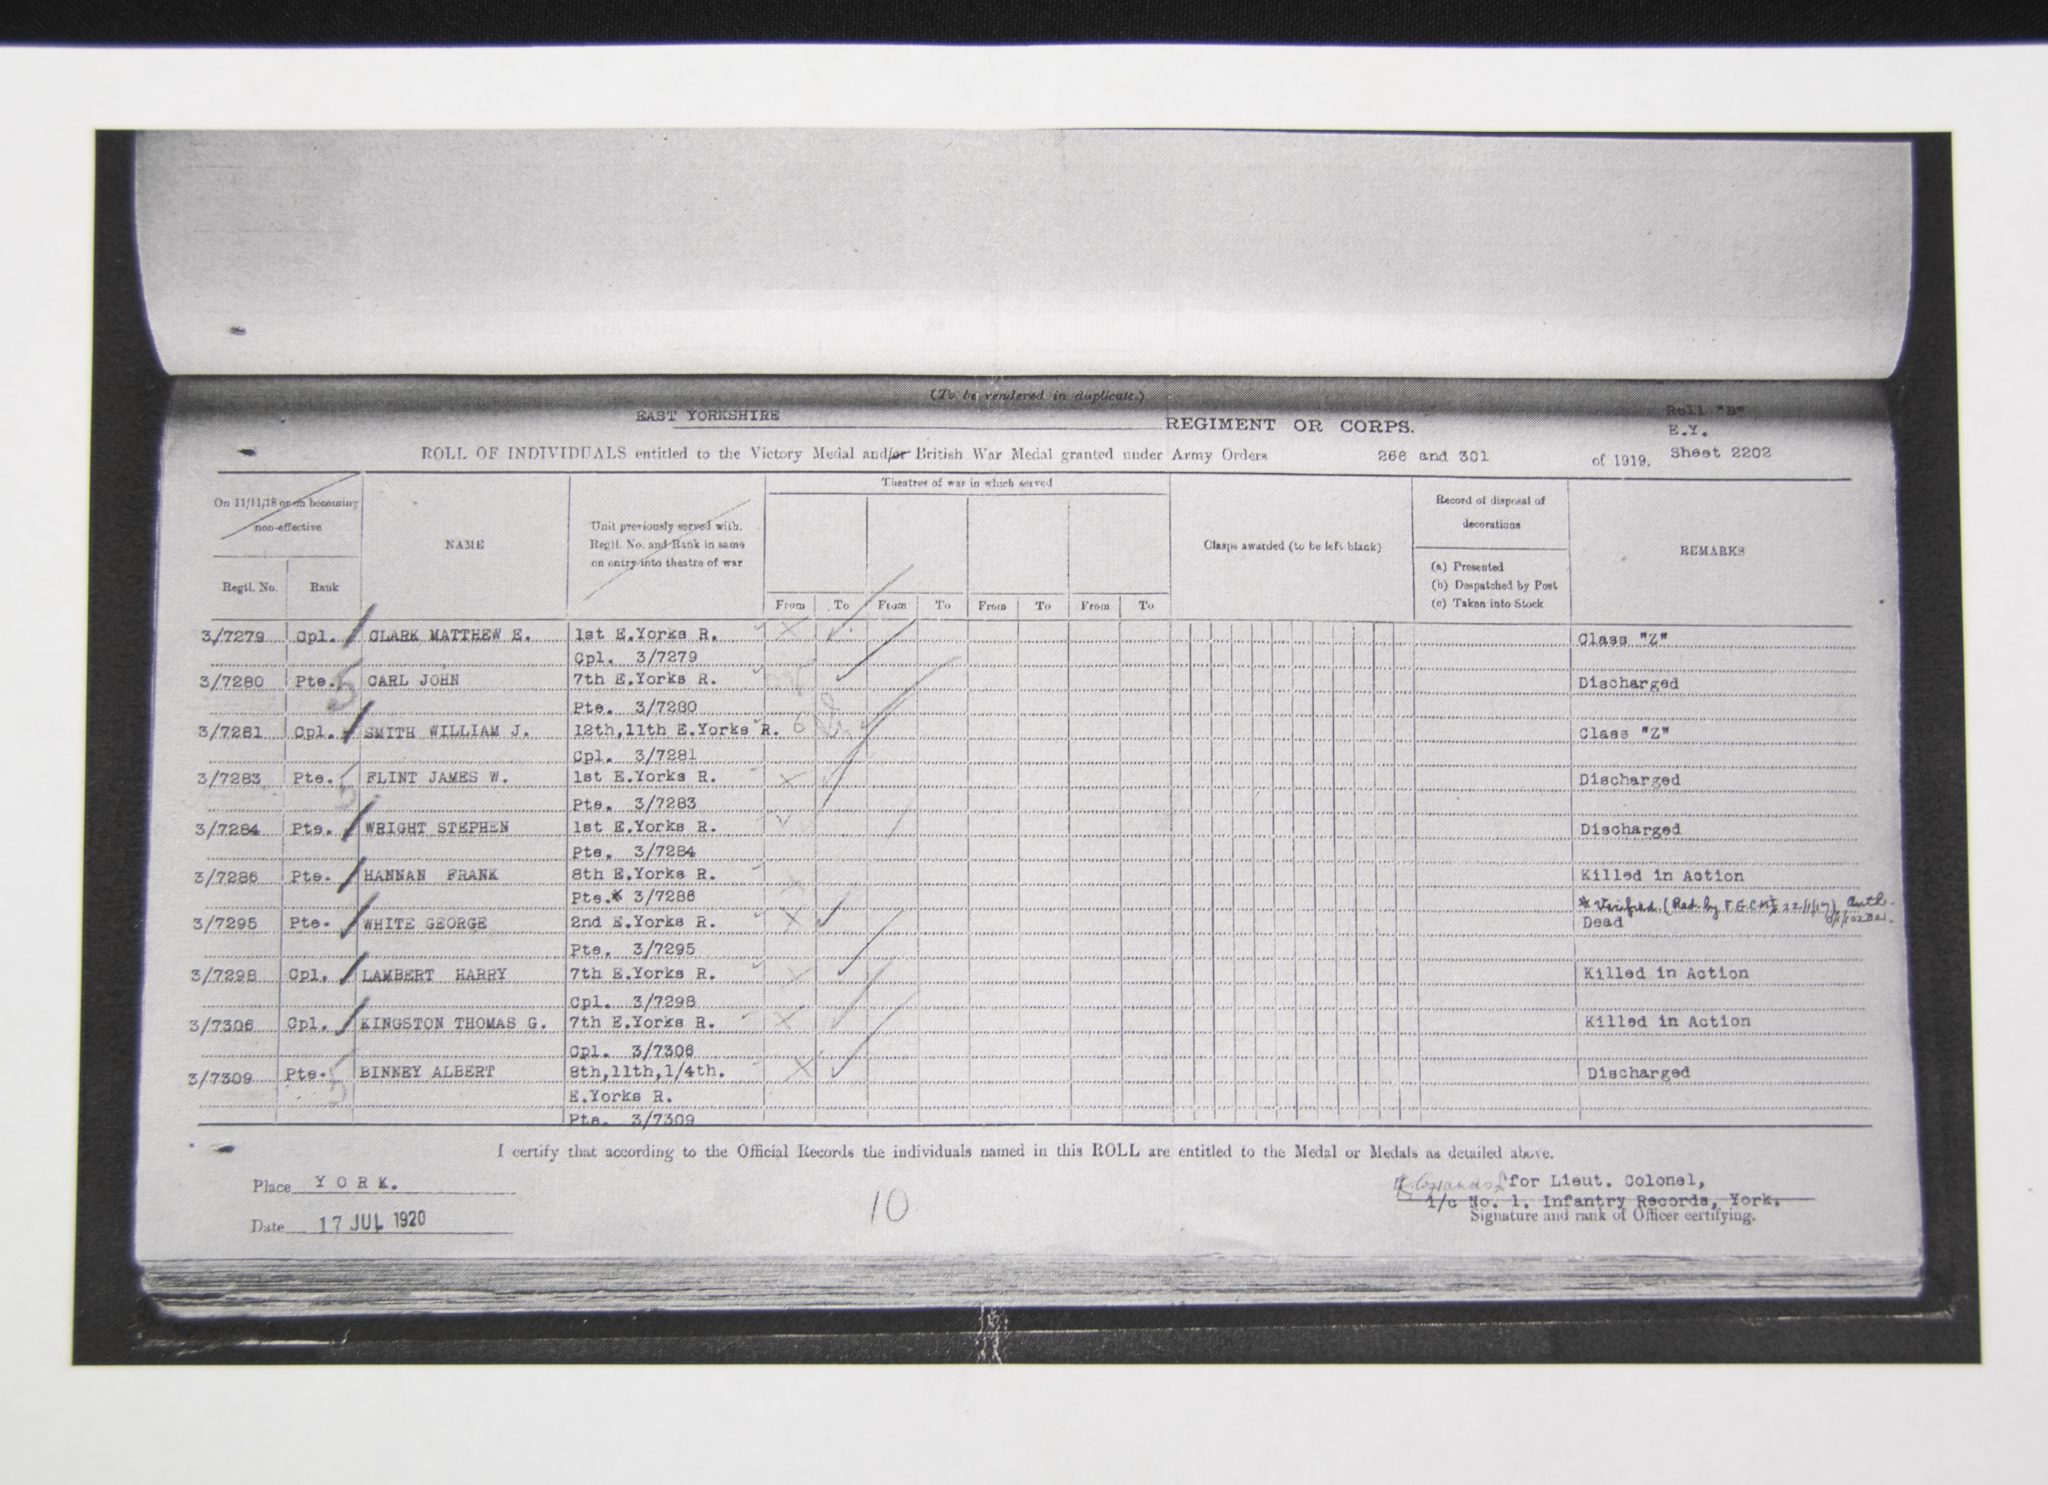 (To be rendered in duplicate.)
EAST YORKSHIRE REGIMENT OR CORPS.
Roll "B"
E.Y.
Sheet 2202
ROLL OF INDIVIDUALS entitled to the Victory Medal and/or British War Medal granted under Army Orders 266 and 301 of 1919.
On 11/11/18 or on becoming
non-effective
Regtl. No. Rank
NAME
Unit previously served with.
Regtl. No. and Rank in same
on entry into theatre of war
Theatres of war in which served
From To From To From To From To
Clasps awarded (to be left blank)
Record of disposal of
decorations
(a) Presented
(b) Despatched by Post
(c) Taken into Stock
REMARKS
3/7279 Cpl. CLARK MATTHEW E. 1st E.Yorks R. Class "Z"
Cpl. 3/7279
3/7280 Pte. 5 CARL JOHN 7th E.Yorks R. Discharged
Pte. 3/7280
3/7281 Cpl. SMITH WILLIAM J. 12th,11th E.Yorks R. 6 Class "Z"
Cpl. 3/7281
3/7283 Pte. 5 FLINT JAMES W. 1st E.Yorks R. Discharged
Pte. 3/7283
3/7284 Pte. WRIGHT STEPHEN 1st E.Yorks R. Discharged
Pte. 3/7284
3/7286 Pte. HANNAN FRANK 8th E.Yorks R. Killed in Action
Pte.* 3/7286 * Verified (Red. by F.G.C.M. 22/1/17) Auth.
3/7295 Pte. WHITE GEORGE 2nd E.Yorks R. Dead
Pte. 3/7295
3/7298 Cpl. LAMBERT HARRY 7th E.Yorks R. Killed in Action
Cpl. 3/7298
3/7306 Cpl. KINGSTON THOMAS G. 7th E.Yorks R. Killed in Action
Cpl. 3/7306
3/7309 Pte. 5 BINNEY ALBERT 8th,11th,1/4th. Discharged
E.Yorks R.
Pte. 3/7309
I certify that according to the Official Records the individuals named in this ROLL are entitled to the Medal or Medals as detailed above.
Place YORK.
Date 17 JUL 1920
10
for Lieut. Colonel,
i/c No. 1. Infantry Records, York.
Signature and rank of Officer certifying.